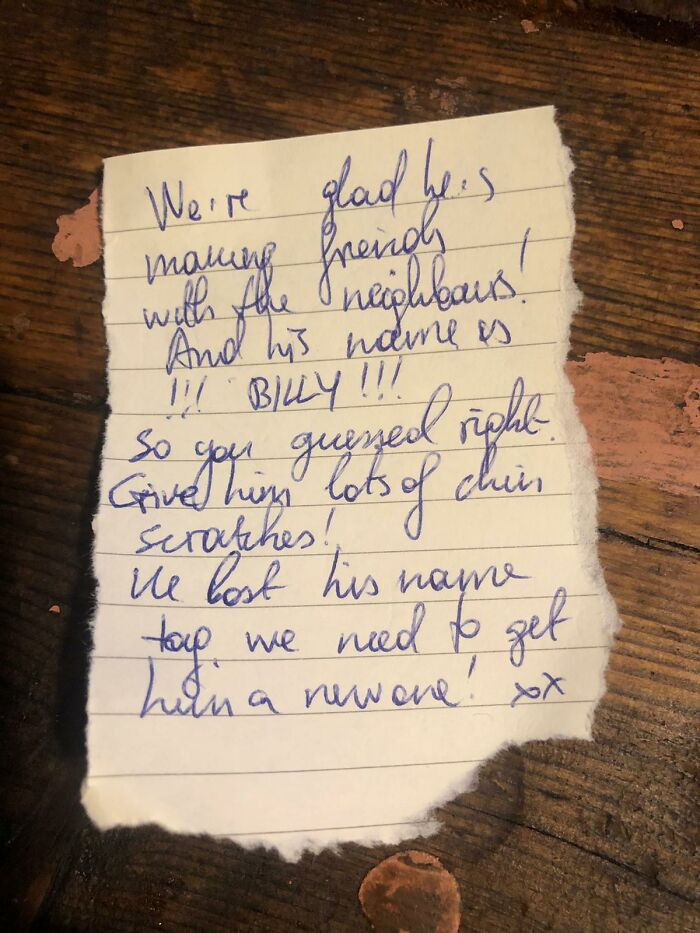 We're glad he is
making freinds
with the neighbours!
And his name is
!!! BILLY !!!
So you guessed right.
Give him lots of chin
scratches!
He lost his name
tag, we need to get
him a new one! xox